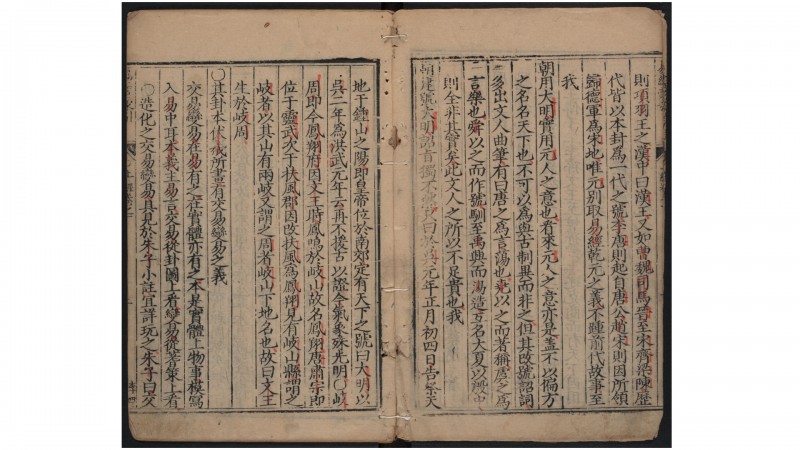 則項羽王之漢中曰漢王又如曹魏司馬晋至宋齊梁陳歷
代皆以本封為一代之號李唐則起自唐公趙宋則因所領
歸德軍為宋地唯元別取易經乾元之義不踵前代故事至
我
朝用大明實用元人之意也者來元人之意亦是盖不以偏方
之名名天下也不可以為與古制異而非之但其改號詔詞
多出文人曲筆有曰唐之為言蕩也堯以之而著稱虞之為
言樂也舜以之而作號馴至禹興而湯造互名大夏以殷中
則全非其實矣此文人之所以不足貴也我
朝建號大明詔首獨不然其曰於吳元年正月初四日告祭天
地于鍾山之陽即皇帝位於南郊定有天下之號曰大明以
吳二年為洪武元年云再不援古以證今氣象殊先明○岐
周即今鳳翔府因文王時鳳鳴於岐山故名鳳翔唐肅宗即
位于靈武次于扶風郡因改扶風為鳳翔見有岐山縣謂之
岐者以其山有兩岐又謂之周者岐山下地名也故曰文王
生於岐周
○其卦本伏羲所畫有交易變易之義
交易變易在易有之在實體亦有之本是實體上物事模寫
入易中耳本義主易言交易從卦圖上看變易從蓍策上看
○造化之交易變易具見於朱子小註宜詳玩之朱子曰交